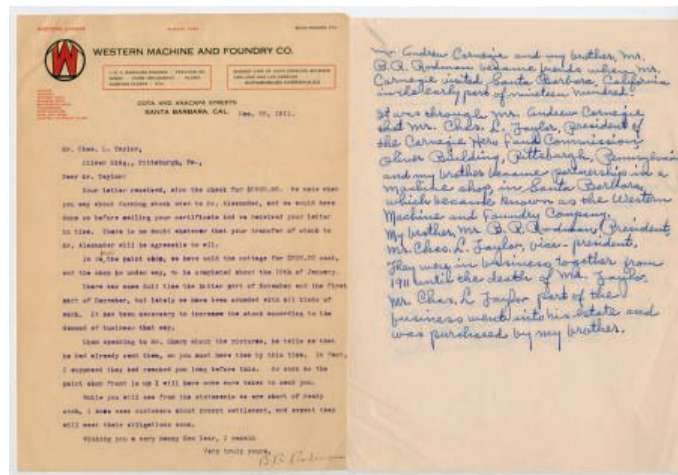 W
WESTERN MACHINE AND FOUNDRY CO.
COTA AND ANACAPA STREETS
SANTA BARBARA, CAL.
1911.
Mr. Chas. L. Taylor,
Oliver Bldg., Pittsburgh, Pa.,
Dear Mr. Taylor:
Your letter received, also the check for We note what
you say about turning stock over to Mr. Alexander, and we would have
done so before mailing your certificate had we received your letter
in time. There is no doubt whatever that your transfer of stock to
Mr. Alexander will be agreeable to all.
In re, the paint shop, we have sold the cottage for cash,
and the shop is under way, to be completed about the 15th of January.
There was some dull time the latter part of November and the first
part of December, but lately we have been crowded with all kinds of
work. It has been necessary to increase the stock according to the
demand of business that way.
Upon speaking to Mr. about the pictures, he tells me that
he had already sent them, so you must have them by this time. In fact,
I supposed they had reached you long before this. As soon as the
paint shop front is up I will have some more taken to send you.
While you will see from the statements we are short of ready
cash, I have seen customers about prompt settlement, and expect they
will meet their obligations soon.
Wishing you a very happy New Year, I remain
Very truly yours,
B.R. Rodman
Mr. Andrew Carnegie and my brother, Mr.
B.R. Rodman became friends when Mr.
Carnegie visited Santa Barbara, California
in the early part of nineteen hundred.
It was through Mr. Andrew Carnegie
that Mr. Chas. L. Taylor, President of
the Carnegie Hero Fund Commission
Oliver Building, Pittsburgh, Pennsylvania
and my brother became partnership in a
machine shop in Santa Barbara,
which became known as the Western
Machine and Foundry Company.
My brother, Mr B.R. Rodman, President,
Mr. Chas. L. Taylor, vice-president.
They were in business together from
1911 until the death of Mr. Taylor.
Mr Chas. L Taylor part of the
business went into his estate and
was purchased by my brother.